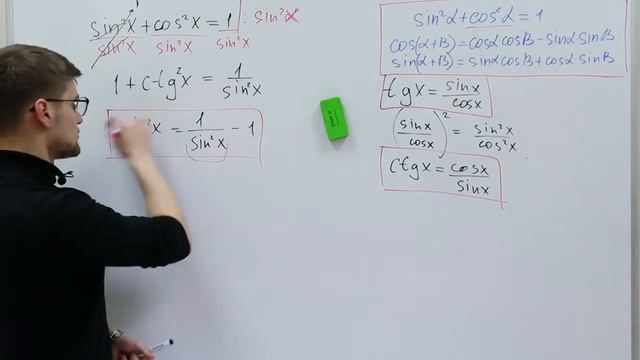 sin²x + cos²x = 1 : sin²x
sin²x sin²x sin²x
1 + ctg²x = 1/sin²x
²x = 1/sin²x - 1
sin²α + cos²α = 1
cos(α+B) = cosα cosB - sinα sinB
sin(α+B) = sinα cosB + cosα sinB
tgx = sinx/cosx
(sinx/cosx)² = sin²x/cos²x
ctgx = cosx/sinx